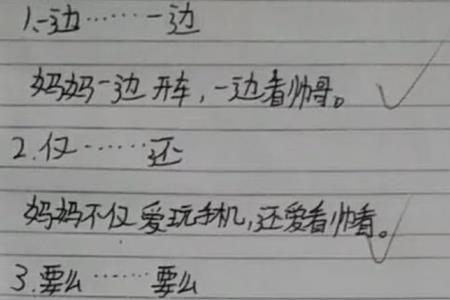 1.一边……一边
妈妈一边开车，一边看帅哥。
2.仅……还
妈妈不仅爱玩手机，还爱看帅看。
3.要么……要么